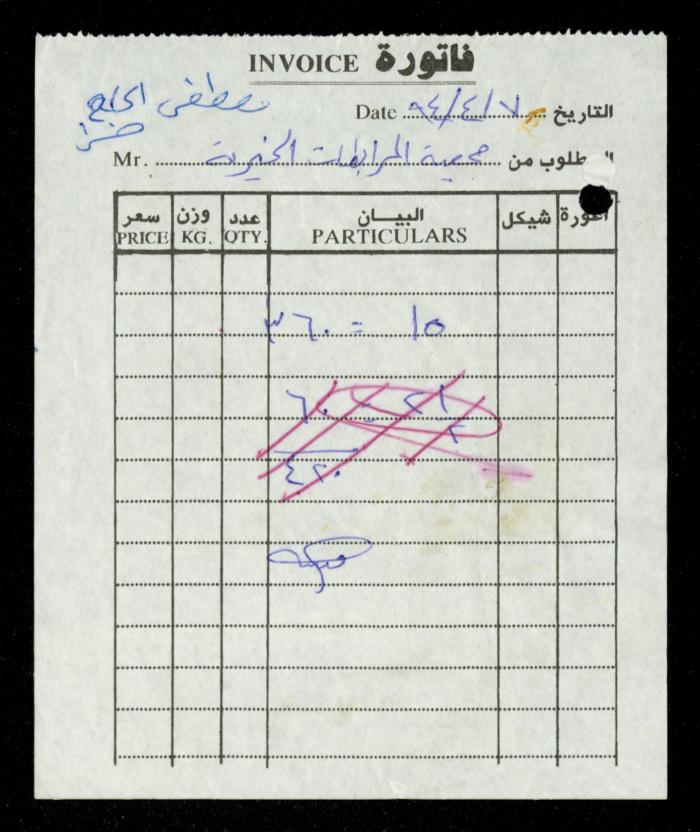 INVOICE فاتورة
مصطفى الحاج
Date ٩٤/٤/٧ التاريخ
Mr. جمعية المرابطات الخيرية المطلوب من
سعر وزن عدد البيان شيكل اغورة
PRICE KG. QTY. PARTICULARS
١٥ = ٣٦٠
٦٠
٤٢٠